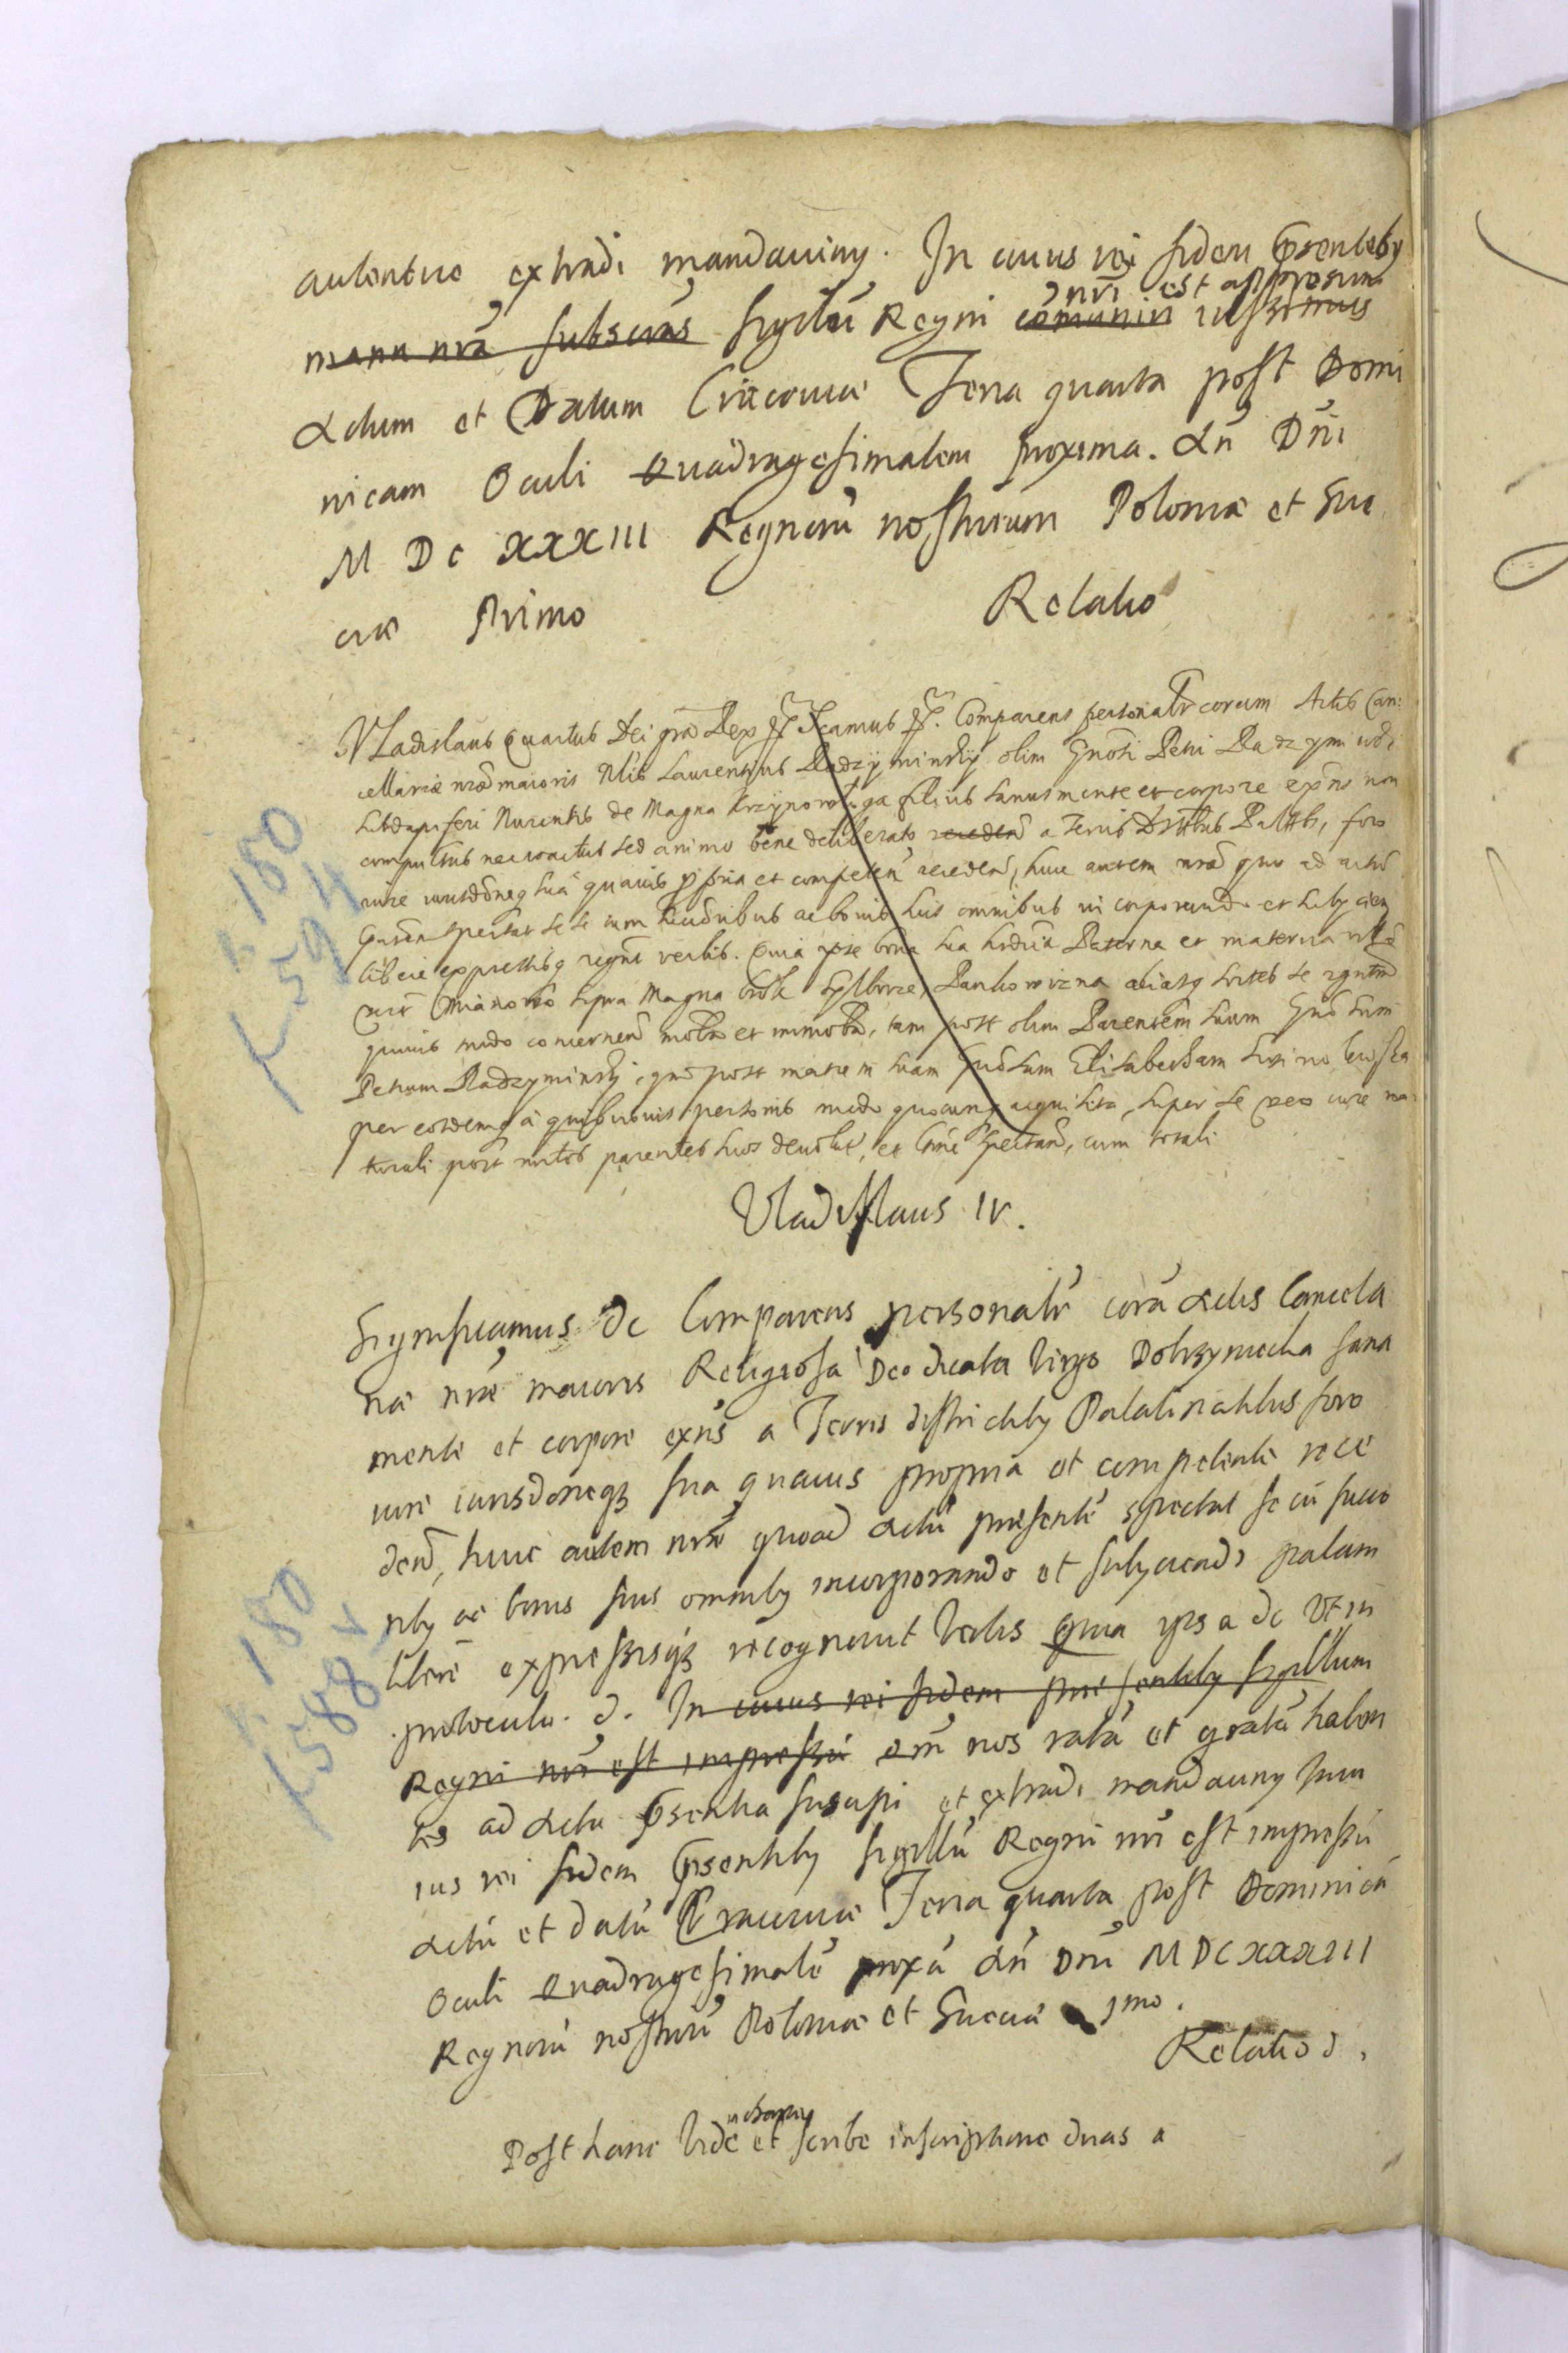 autentice extradi mandavimus. In cuius rei fidem presentibus
manu nrã subscrips sigillũ Regni cõmuniri iussimus nr̃i est appressum
Actum et Datum Cracoviæ Feria quarta post Domi
nicam Oculi Quadragesimalem proxima. An̄ Dn̄i
M DC XXXIII Regnorũ nostrorum Poloniæ et Sue
ciæ Primo
Relatio
Vladislaus Quartus Dei grã Rex Scamus. Comparens personalr̃ coram Actis Can:
cellariæ nræ maioris Nlis Laurentius Radzyminsky olim Gnosi Petri Radzyminski
Subdapiferi Nurensis de Magna Krzynowloga filius sanus mente et corpore exñs non
compulsus nec coactus sed animo bene deliberato recedend̃ a Terris Dist̃bus Palt̃bs, foro
iure iurisdõneq sua quavis p̱pria et competen̄ receden̄, huic autem nræ quo ad actũ
præsen spectat sese cum successoribus ac bonis suis omnibus incorporando et subijciens
libere expressisq recgñt verbis. Quia ipse bona sua hæred̃ia Paterna et materna
supra Magna Pankowizna aliasq sortes se
quovis modo concernen̄ mobilia et immobilia, tam post olim Parentem suum Gnosum
Petrum Radzyminsky, qm̄ post matrem suam Gnosam Elisabetham
per eosdemq a quibusvis personis modo quocunq acquisita, super se vero iure na
turali post mortes parentes suos devolut̃, et spectan̄, cum totali
Vladislaus IV.
Significamus &c Comparens personalr̃ corã Actis Cancella
riæ nr̃æ maioris Religiosa Deo dicata Virgo Dobrzyniecka sana
mente et corpore exñs a Terris districtibus Palatinatibus foro
iure iurisdõneqз sua quavis propria et competente rece
den̄, huic autem nræ quoad actũ presentẽ spectat se cũ succo
ribus ac bonis suis omnibus incorporando et subyciendo palam
libere expressisqз recognovit verbis quia ipsa &c Vt in
protocolo. &. In cuius rei fidem presentibus sigillum
Regni nr̃i est impressũ nos ratũ et gratũ haben
tes ad Acta p̱sentia suscipi et extradi mandavimus In cu
ius rei fidem p̱sentibus sigillũ Regni nr̃i est impressũ
Actũ et datũ Cracoviæ Feria quarta post Dominicã
Oculi Quadragesimalẽ proxã An̄ Dn̄i MDCXXXIII
Regnorũ nostrorũ Poloniæ et Sueciæ 1mo.
Relatio &.
Post hanc vide et scribe inscriptione duas a
k 180
f 594
k 180
f 588 v